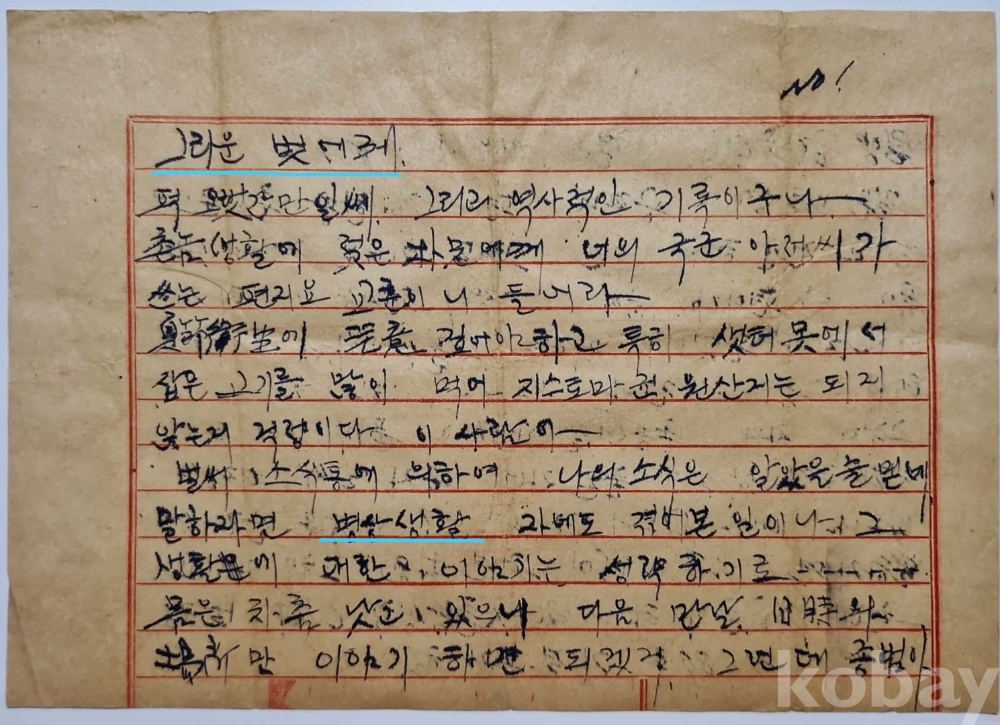 No 1
그리운 벗에게.
퍽 오랫간만일쎄. 그리고 역사적인 기록이구나—
촌놈생활에 젖은 너의 국군 아저씨가
쓰는 편지요 들어라—
夏節衛生에 걸어야하고 특히 샛터못에서
잡은 고기를 많이 먹어 지스토마 균 원산지는 되지
않는지 걱정이다 이 사람아—
벌써 소식통에 의하여 나의 소식은 알았을 줄 믿네
말하자면 병상생활 자네도 겪어본 일이니 그
생활에 대한 이야기는 생략하기로
몸은 차츰 낫고 있으나 다음 만날 時의
만 이야기 하면 되겠지 그런데 종범이
kobay